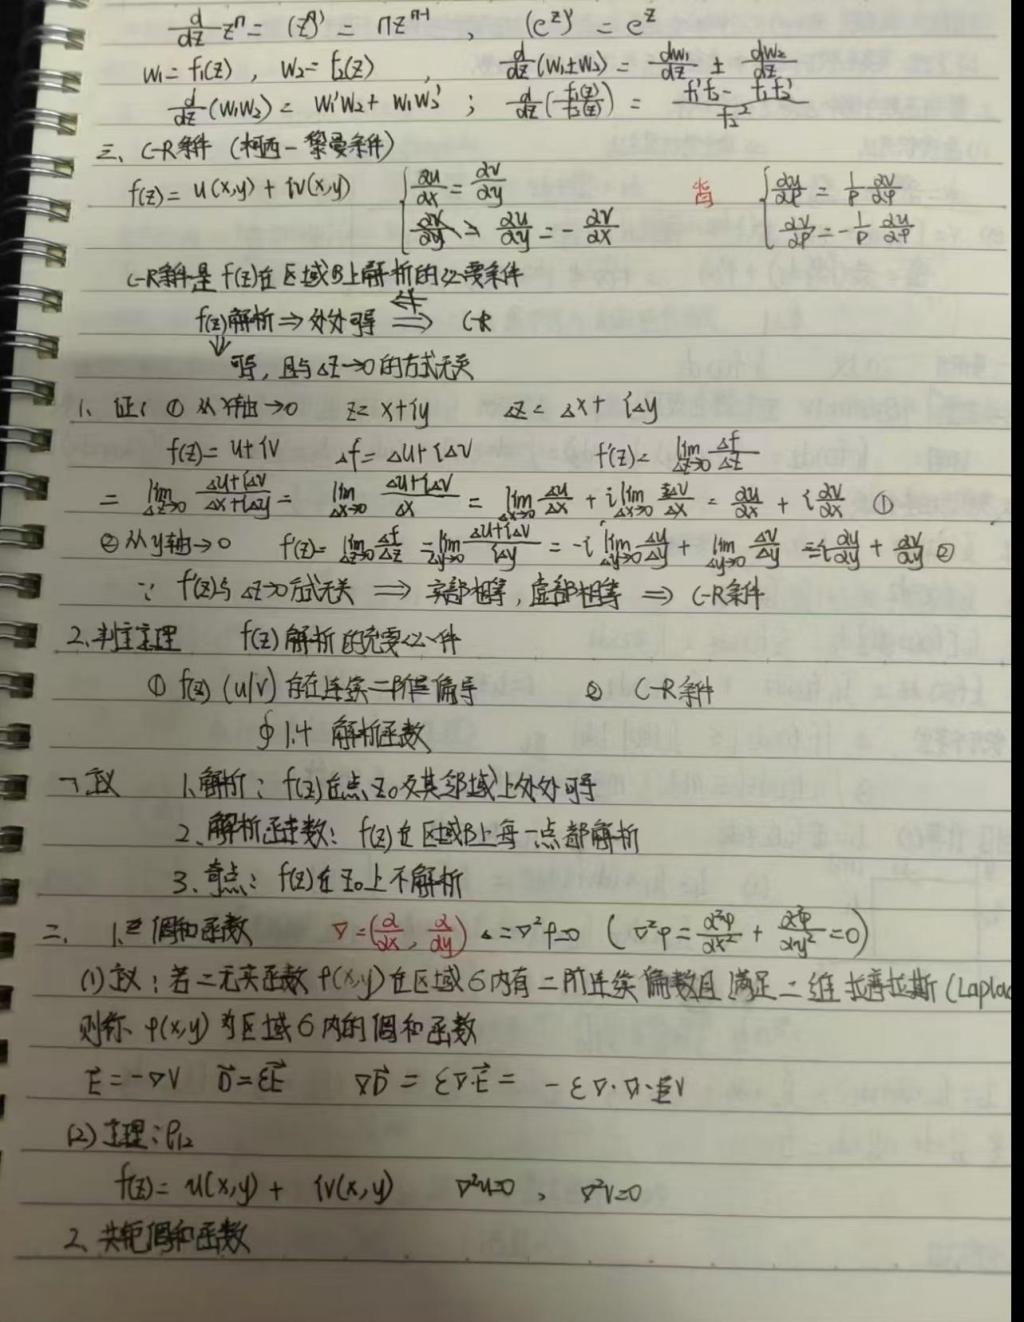 d/dz zⁿ = (zⁿ)' = nzⁿ⁻¹ , (e^z)' = e^z
w₁ = f₁(z) , w₂ = f₂(z) , d/dz (w₁±w₂) = dw₁/dz ± dw₂/dz
d/dz (w₁w₂) = w₁'w₂ + w₁w₂' ; d/dz (f₁(z)/f₂(z)) = (f₁'f₂ - f₁f₂')/f₂²
三、C-R条件 (柯西-黎曼条件)
f(z) = u(x,y) + iv(x,y) { ∂u/∂x = ∂v/∂y { ∂u/∂ρ = 1/ρ ∂v/∂φ
∂u/∂y = - ∂v/∂x ∂v/∂ρ = - 1/ρ ∂u/∂φ
C-R条件是 f(z)在区域B上解析的必要条件
f(z)解析 ⇒ 处处可导 ⇒ C-R
⇓ 可导, 且与Δz→0的方式无关
1. 证: ① 从x轴→0 z = x+iy Δz = Δx + iΔy
f(z) = u+iv Δf = Δu+iΔv f'(z) = lim Δz→0 Δf/Δz
= lim Δz→0 (Δu+iΔv)/(Δx+iΔy) = lim Δx→0 (Δu+iΔv)/Δx = lim Δx→0 Δu/Δx + i lim Δx→0 Δv/Δx = ∂u/∂x + i ∂v/∂x ①
② 从y轴→0 f'(z) = lim Δz→0 Δf/Δz = lim Δy→0 (Δu+iΔv)/iΔy = -i lim Δy→0 Δu/Δy + lim Δy→0 Δv/Δy = -i ∂u/∂y + ∂v/∂y ②
∵ f'(z)与Δz→0方式无关 ⇒ 实部相等, 虚部相等 ⇒ C-R条件
2. 判定定理 f(z)解析的充要条件
① f(z) (u/v) 存在连续一阶偏导 ② C-R条件
∮1.4 解析函数
一、定义 1. 解析: f(z)在点z₀及其邻域上处处可导
2. 解析函数: f(z)在区域B上每一点都解析
3. 奇点: f(z)在z₀上不解析
二、 1. 调和函数 ∇=(∂/∂x, ∂/∂y) Δ=∇²φ=0 (∇²φ = ∂²φ/∂x² + ∂²φ/∂y² =0)
(1) 定义: 若二元实函数φ(x,y)在区域G内有二阶连续偏数且满足二维拉普拉斯(Laplac
则称φ(x,y)为区域G内的调和函数
E⃗ = -∇V D⃗ = εE⃗ ∇D⃗ = ε∇·E⃗ = -ε∇·∇·V
(2) 定理: P₁₂
f(z) = u(x,y) + iv(x,y) ∇²u=0 , ∇²v=0
2. 共轭调和函数